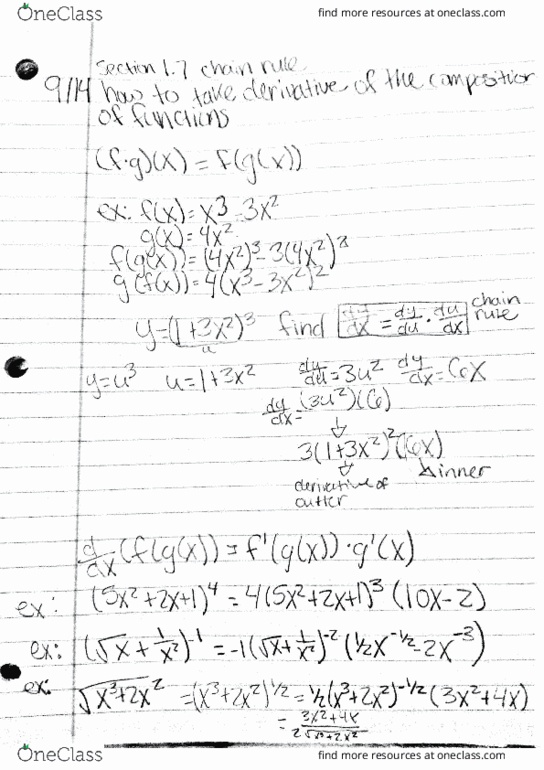 OneClass
find more resources at oneclass.com
Section 1.7 chain rule
9/14 how to take derivative of the composition
of functions
(f·g)(x) = f(g(x))
ex: f(x) = x³ - 3x²
g(x) = 4x²
f(g(x)) = (4x²)³ - 3(4x²)²
g(f(x)) = 4(x³ - 3x²)²
y = (1+3x²)³ find dy/dx = dy/du · du/dx chain rule
u
y = u³ u = 1+3x² dy/du = 3u² dy/dx = 6x
dy/dx = (3u²)(6)
3(1+3x²)²(6x)
inner
derivative of
outter
d/dx (f(g(x)) = f'(g(x)) · g'(x)
ex: (5x² + 2x + 1)⁴ = 4(5x² + 2x + 1)³ (10x - 2)
ex: (√x + 1/x²)⁻¹ = -1(√x + 1/x²)⁻² (1/2x⁻¹/² - 2x⁻³)
ex: √x³+2x² = (x³+2x²)¹/² = 1/2(x³+2x²)⁻¹/² (3x²+4x)
= 3x²+4x / 2√x³+2x²
OneClass
find more resources at oneclass.com